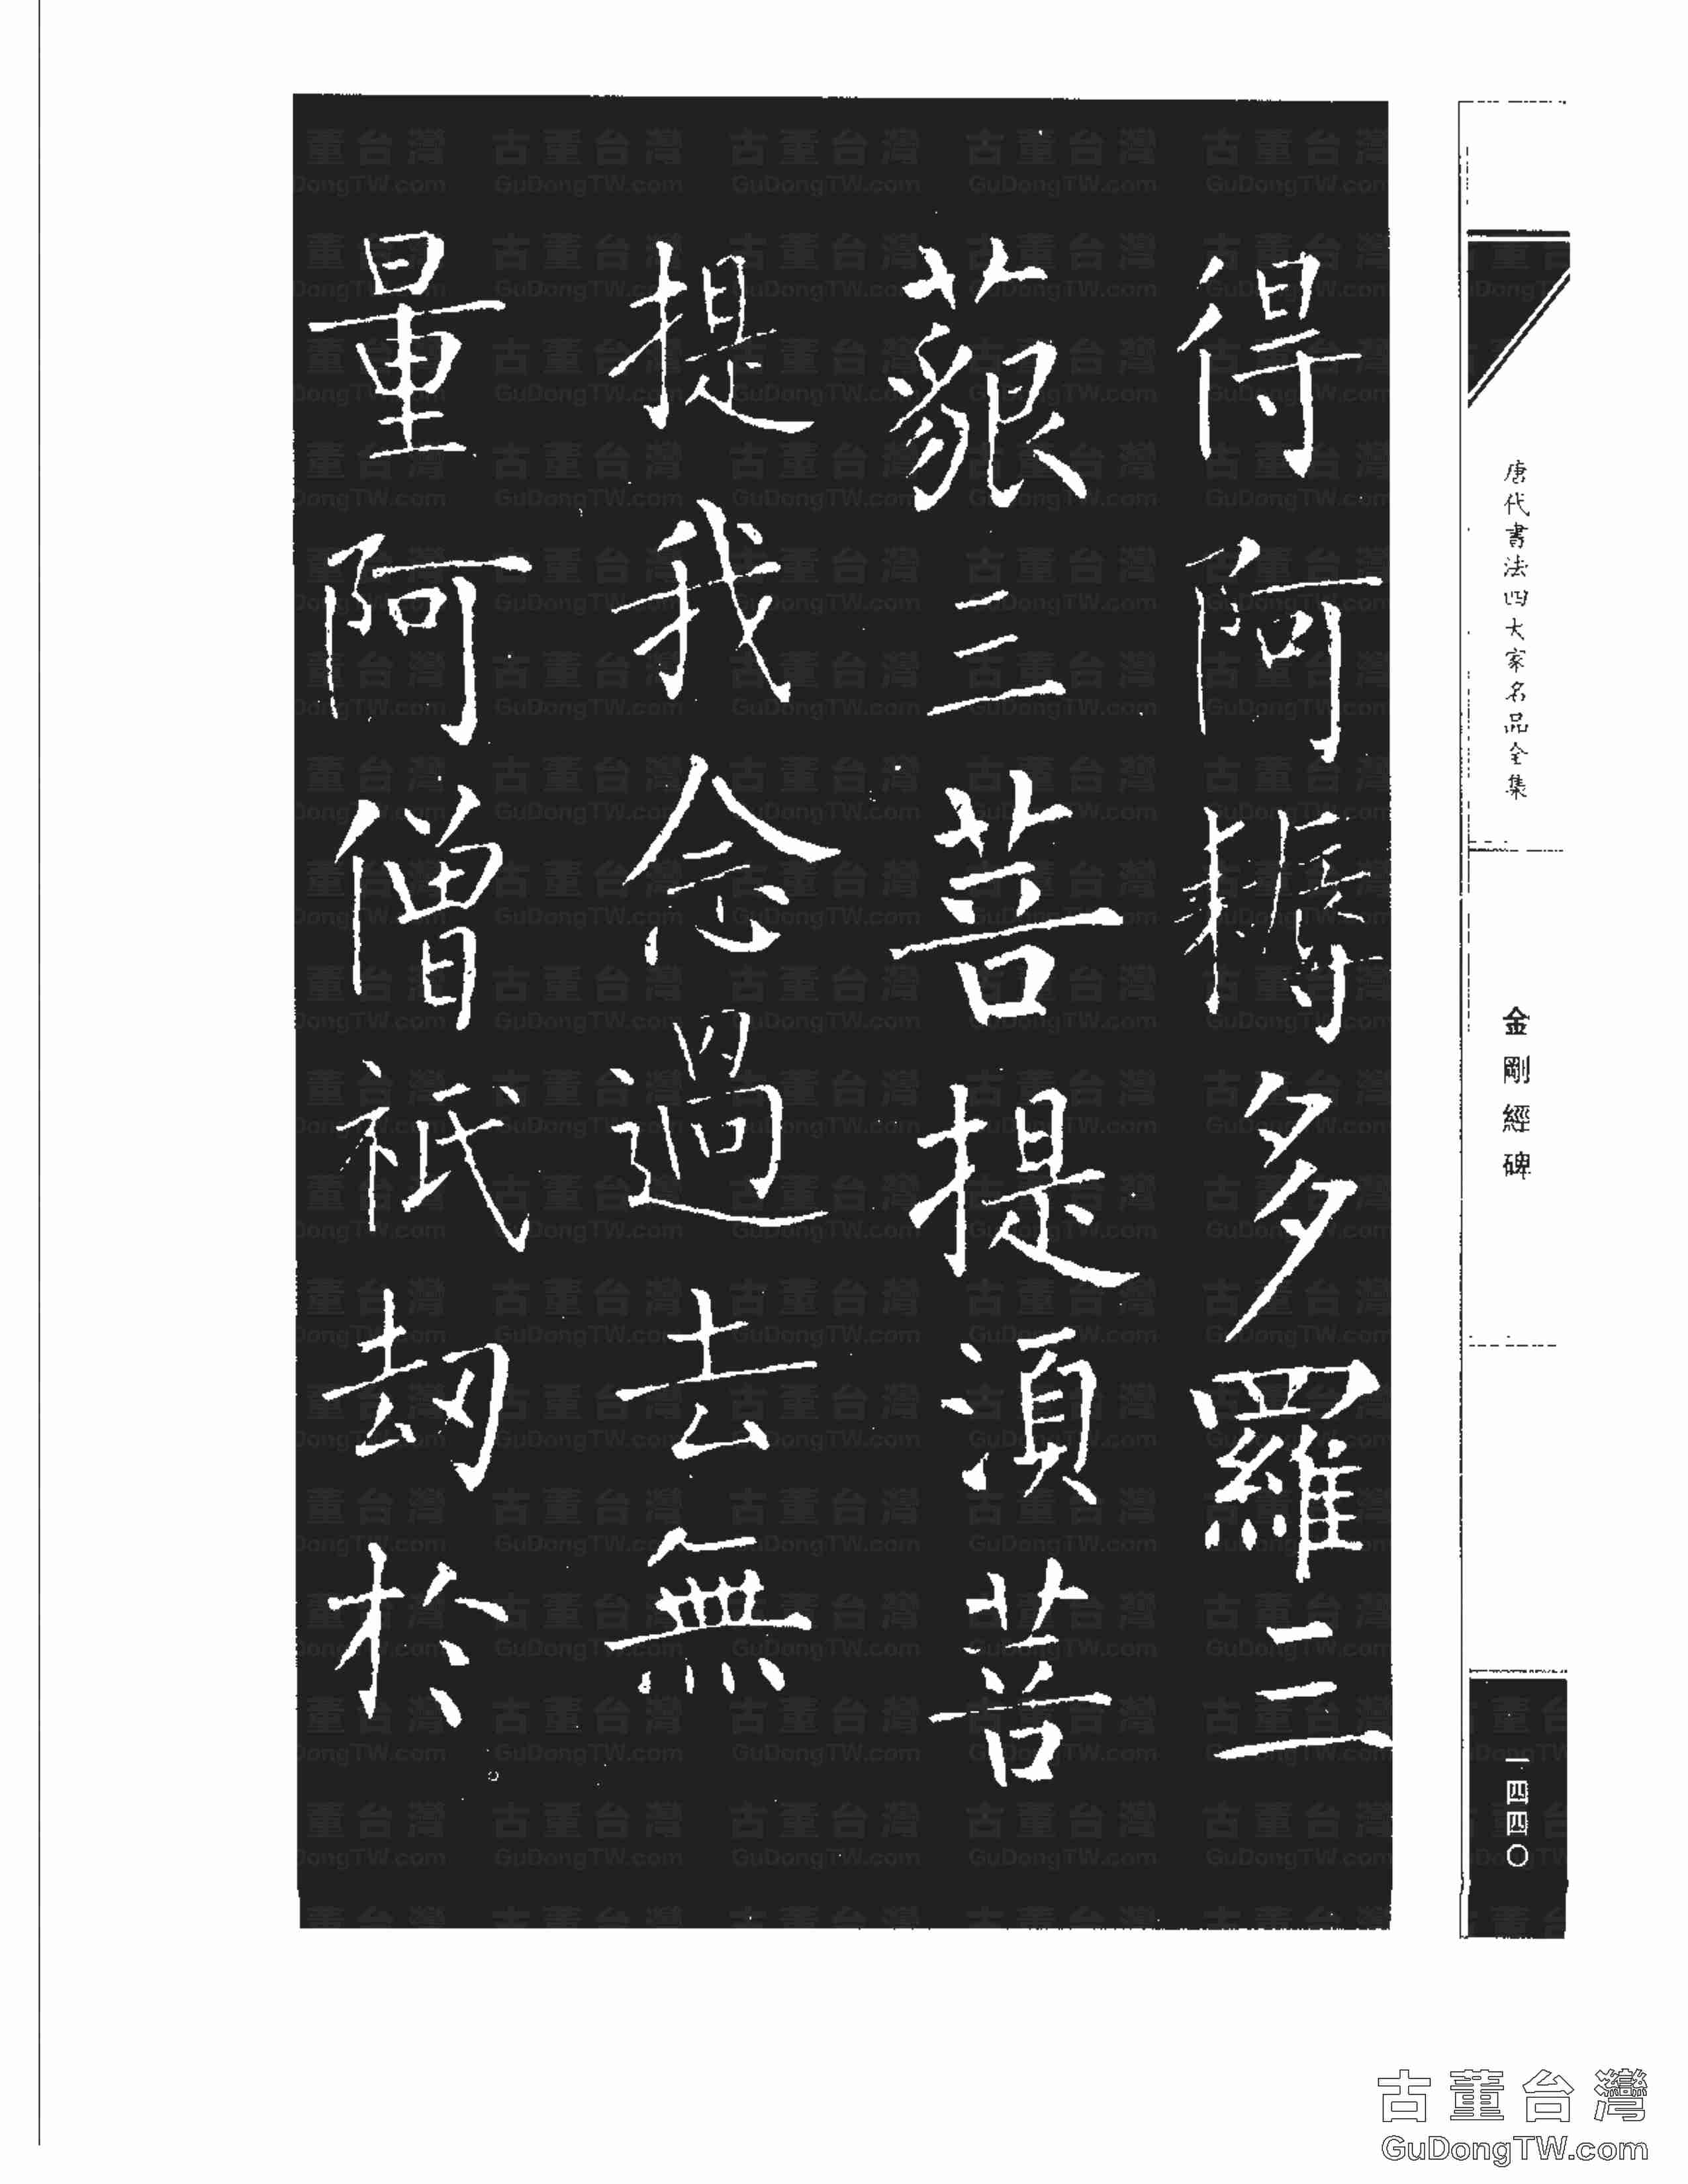 得阿耨多羅三
藐三菩提須菩
提我念過去無
量阿僧祇劫於
唐代書法四大家名品全集
金剛經碑
一四四〇
古董台灣
GuDongTW.com